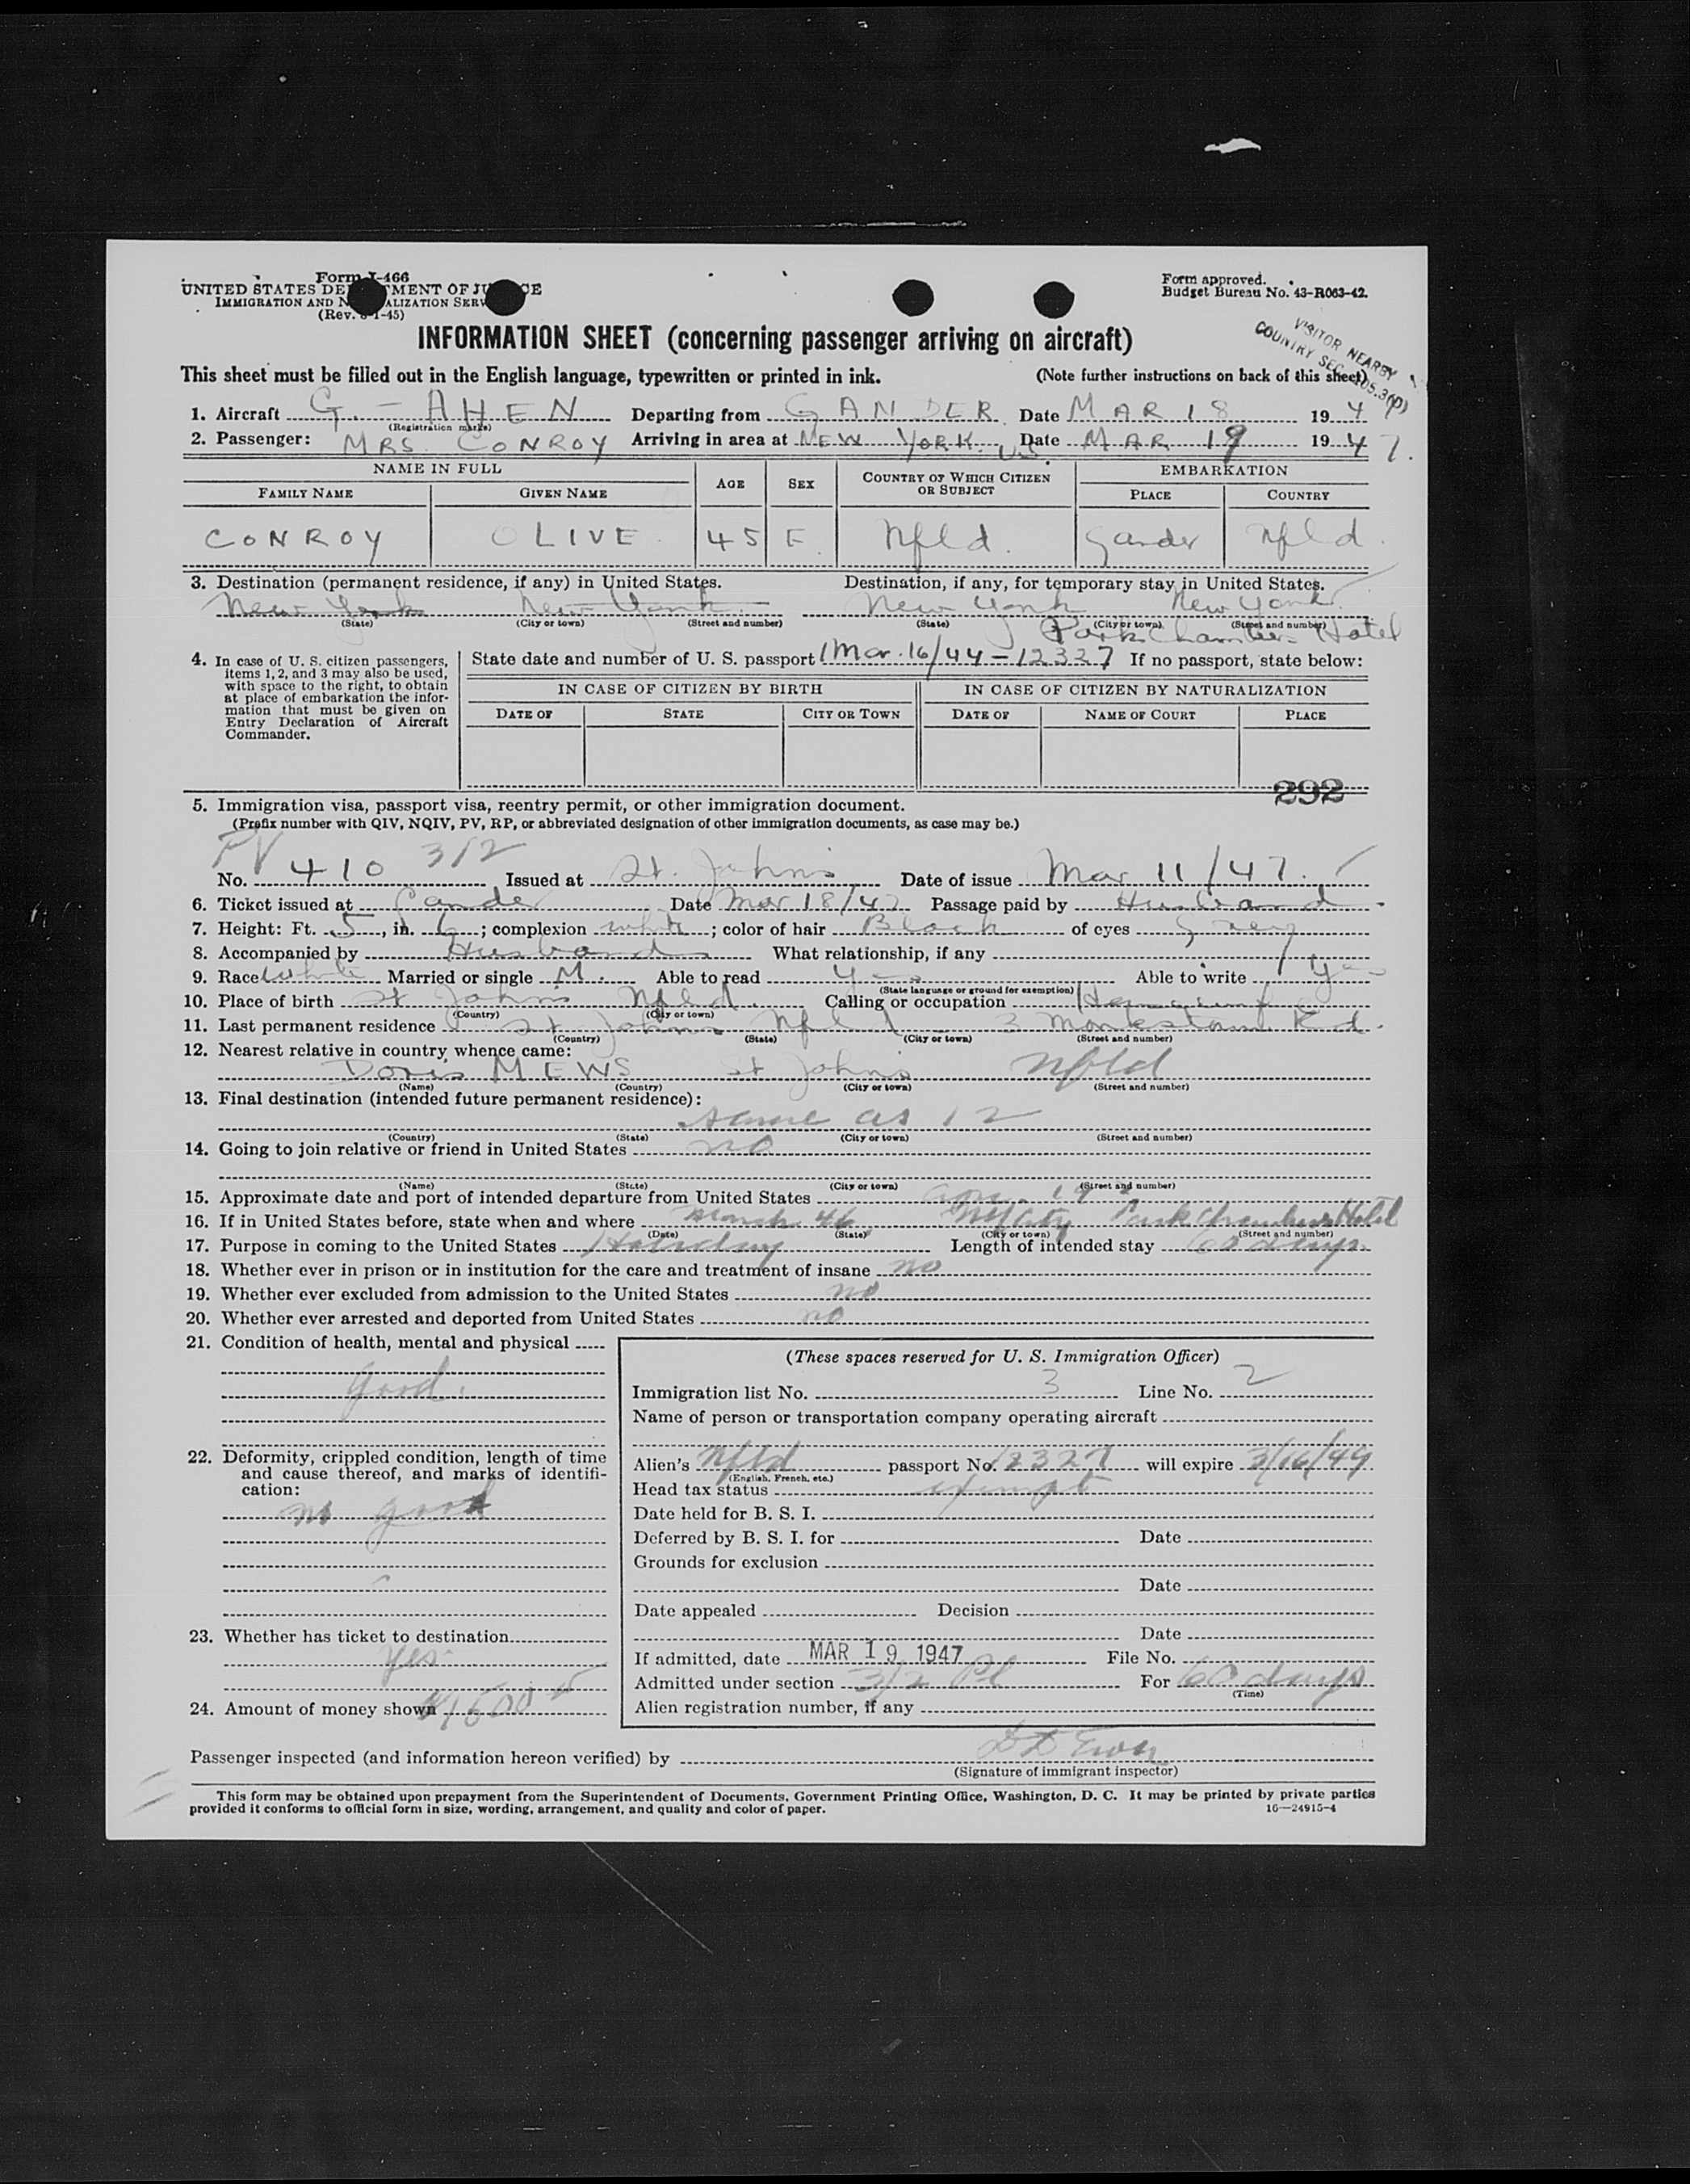 Form I-466
UNITED STATES DE MENT OF JU CE
IMMIGRATION AND N ALIZATION SERV
(Rev. 8-1-45)
Form approved.
Budget Bureau No. 43-R063-42.
VISITOR NEARBY
COUNTRY SEC. 105.3(P)
INFORMATION SHEET (concerning passenger arriving on aircraft)
This sheet must be filled out in the English language, typewritten or printed in ink. (Note further instructions on back of this sheet)
1. Aircraft G.-AHEN Departing from GANDER Date MAR 18 1947
(Registration marks)
2. Passenger: MRS CONROY Arriving in area at NEW YORK U.S. Date MAR 19 1947.
NAME IN FULL AGE SEX COUNTRY OF WHICH CITIZEN OR SUBJECT EMBARKATION
FAMILY NAME GIVEN NAME PLACE COUNTRY
CONROY OLIVE 45 F. Nfld. Gander Nfld.
3. Destination (permanent residence, if any) in United States. Destination, if any, for temporary stay in United States.
New York New York New York New York
(State) (City or town) (Street and number) (State) (City or town) (Street and number)
Park Chambers Hotel
4. In case of U. S. citizen passengers, items 1, 2, and 3 may also be used, with space to the right, to obtain at place of embarkation the information that must be given on Entry Declaration of Aircraft Commander.
State date and number of U. S. passport Mar. 16/44-12327 If no passport, state below:
IN CASE OF CITIZEN BY BIRTH IN CASE OF CITIZEN BY NATURALIZATION
DATE OF STATE CITY OR TOWN DATE OF NAME OF COURT PLACE
292
5. Immigration visa, passport visa, reentry permit, or other immigration document.
(Prefix number with QIV, NQIV, PV, RP, or abbreviated designation of other immigration documents, as case may be.)
PV 3/2
No. 410 Issued at St. Johns Date of issue Mar 11/47.
6. Ticket issued at Gander Date Mar 18/47 Passage paid by Husband
7. Height: Ft. 5, in. 6; complexion white; color of hair Black of eyes Grey
8. Accompanied by Husband What relationship, if any
9. Race White Married or single M. Able to read Yes Able to write Yes
(State language or ground for exemption)
10. Place of birth St Johns Nfld. Calling or occupation
(Country) (City or town)
11. Last permanent residence St Johns Nfld - 3 Monkstown Rd.
(Country) (State) (City or town) (Street and number)
12. Nearest relative in country whence came:
Doris MEWS St Johns Nfld
(Name) (Country) (City or town) (Street and number)
13. Final destination (intended future permanent residence):
same as 12
(Country) (State) (City or town) (Street and number)
14. Going to join relative or friend in United States no
(Name) (State) (City or town) (Street and number)
15. Approximate date and port of intended departure from United States
16. If in United States before, state when and where March 46 NY City Park Chambers Hotel
(Date) (State) (City or town) (Street and number)
17. Purpose in coming to the United States Holiday Length of intended stay 60 days
18. Whether ever in prison or in institution for the care and treatment of insane no
19. Whether ever excluded from admission to the United States no
20. Whether ever arrested and deported from United States no
21. Condition of health, mental and physical
good.
22. Deformity, crippled condition, length of time and cause thereof, and marks of identification:
good
23. Whether has ticket to destination
yes
24. Amount of money shown $1500
(These spaces reserved for U. S. Immigration Officer)
Immigration list No. 3 Line No. 2
Name of person or transportation company operating aircraft
Alien's Nfld passport No. 12327 will expire 3/16/49
(English, French, etc.)
Head tax status exempt
Date held for B. S. I.
Deferred by B. S. I. for Date
Grounds for exclusion
Date
Date appealed Decision
Date
If admitted, date MAR 19 1947 File No.
Admitted under section 3/2 For 60 days
(Time)
Alien registration number, if any
Passenger inspected (and information hereon verified) by
(Signature of immigrant inspector)
This form may be obtained upon prepayment from the Superintendent of Documents, Government Printing Office, Washington, D. C. It may be printed by private parties
provided it conforms to official form in size, wording, arrangement, and quality and color of paper. 16—24915-4